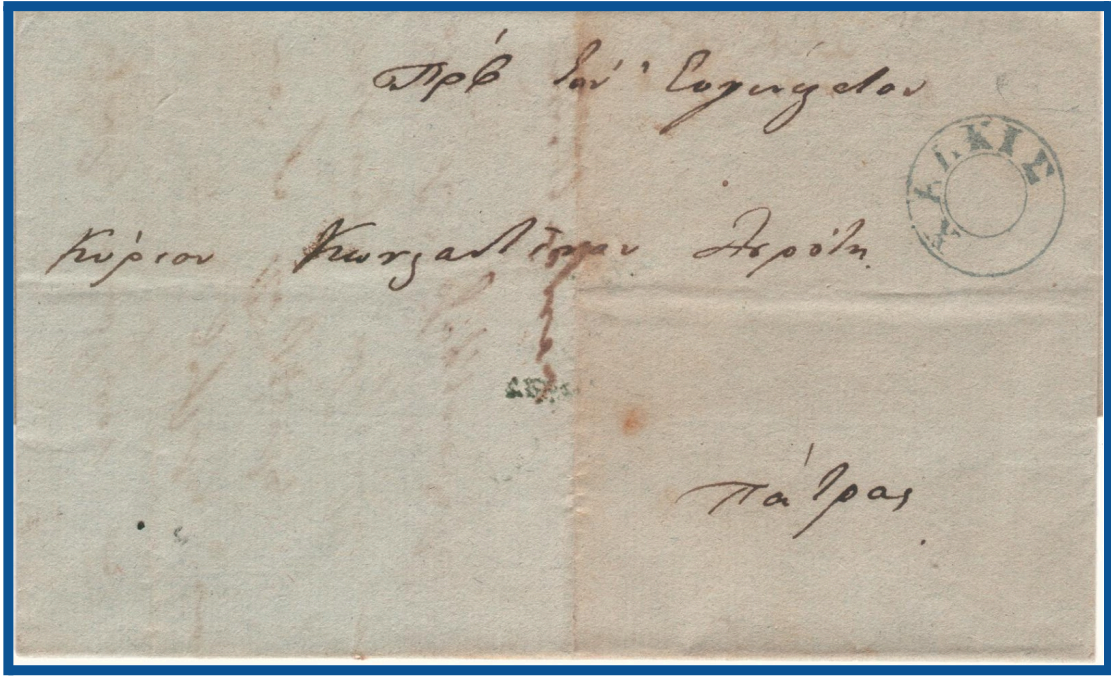 Πρὸς τὸν Εὐγενέστατον
ΧΑΛΚΙΣ
Κύριον Κωνσταντῖνον
Πάτρας